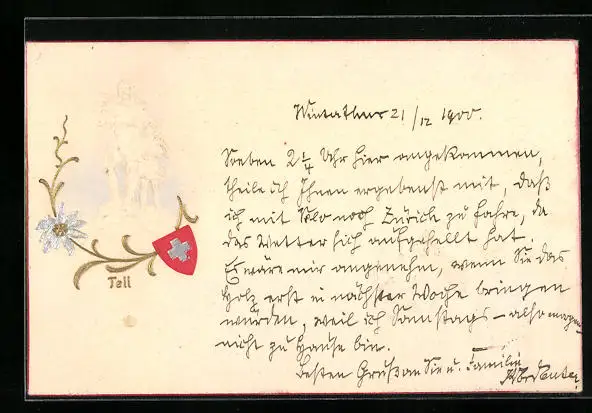 Winterthur 21/12 1900.
Soeben 2 1/4 Uhr hier angekommen,
theile ich Ihnen ergebenst mit, daß
ich mit Velo nach Zürich zu fahre, da
das Wetter sich aufgehellt hat.
Es wäre mir angenehm, wenn Sie das
Holz erst in nächster Woche bringen
würden, weil ich Samstags – also morgen
nicht zu Hause bin.
Besten Gruß an Sie u. Familie
Tell